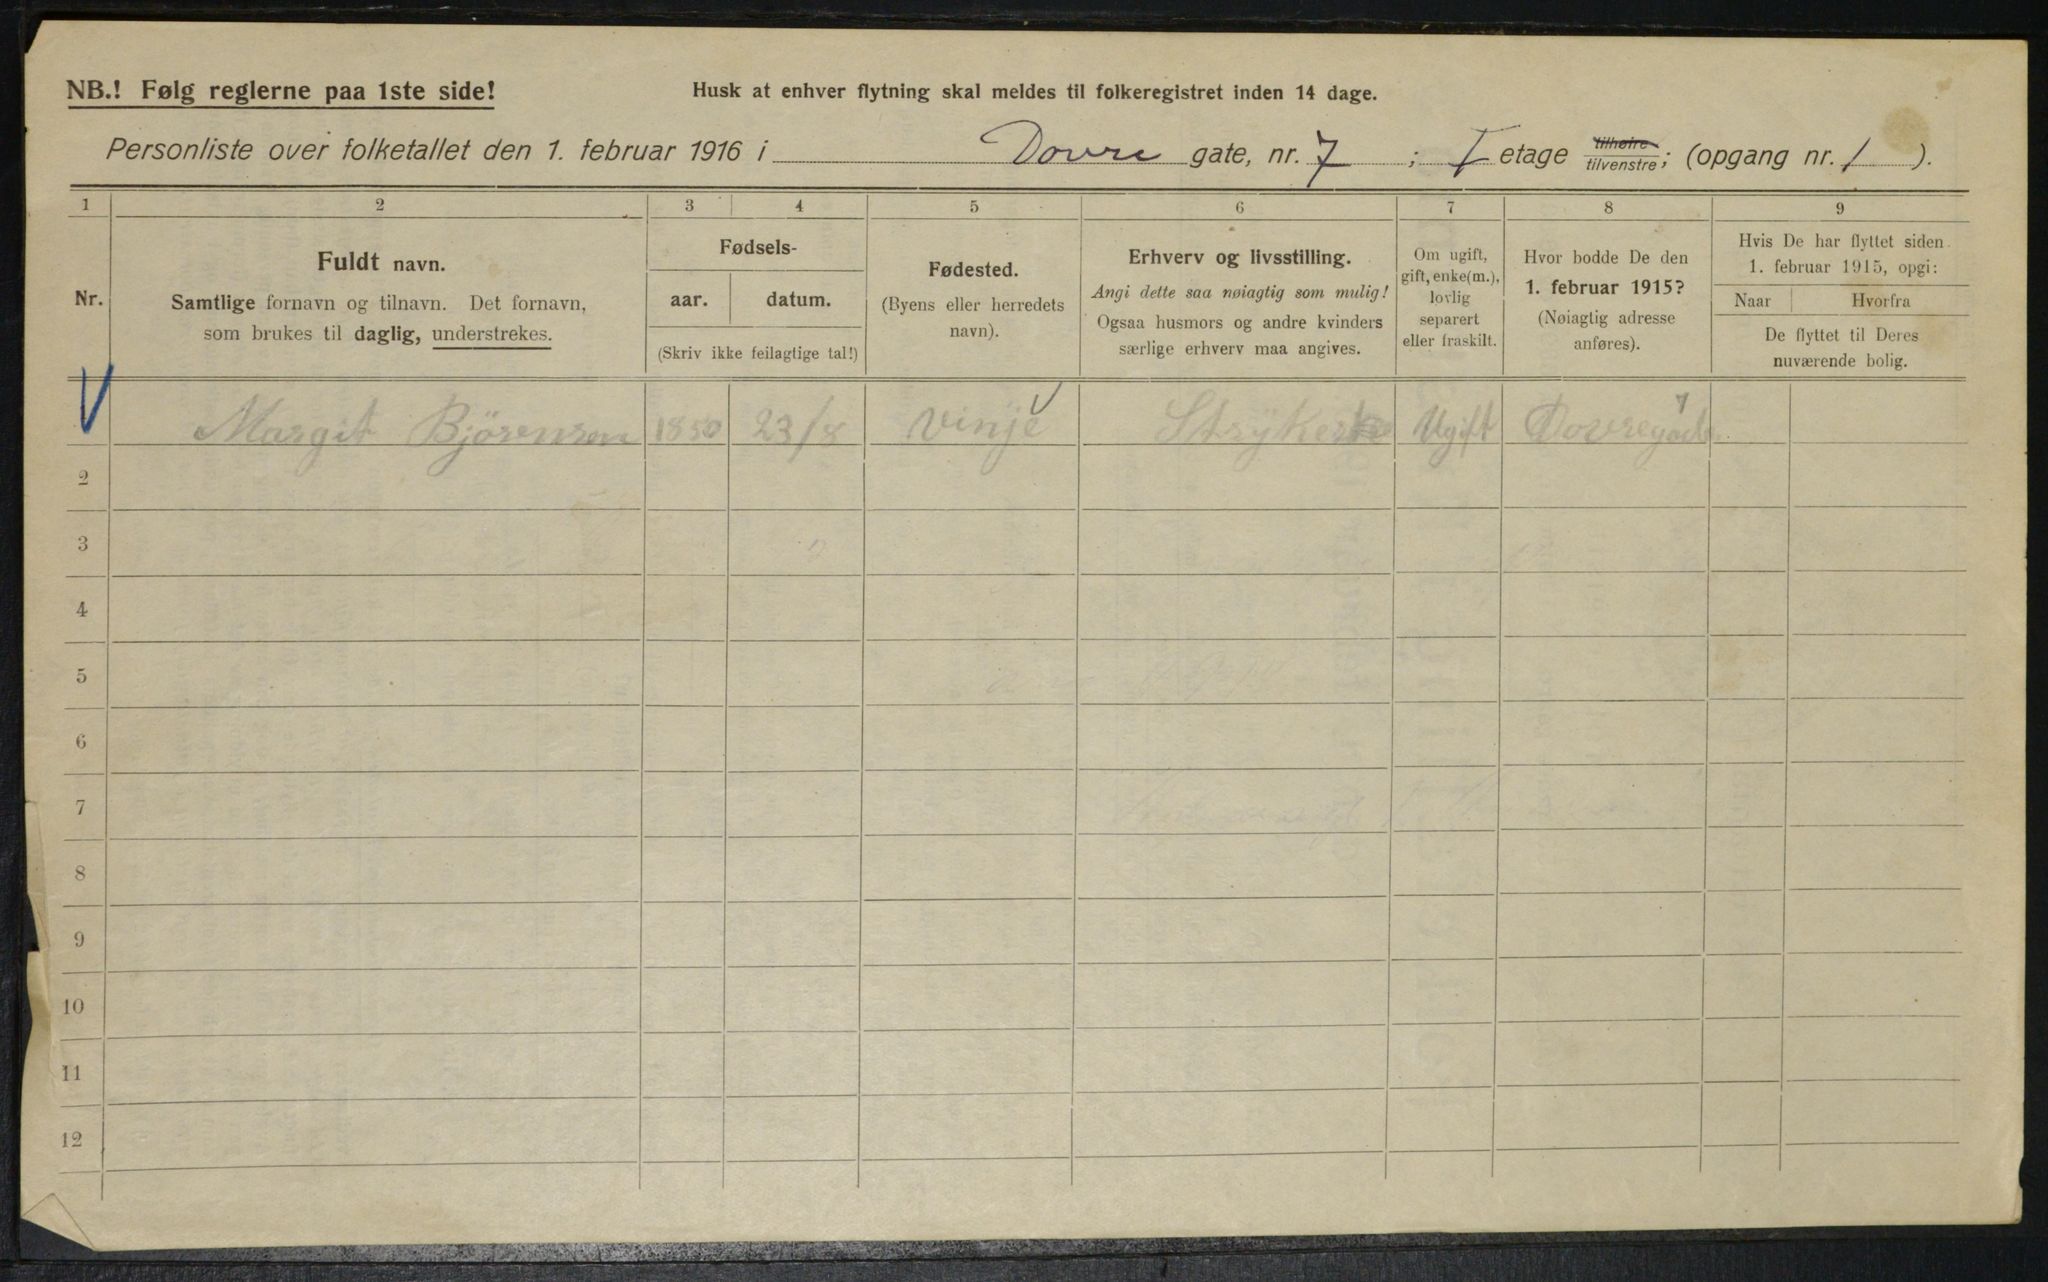 NB.! Følg reglerne paa 1ste side!
Husk at enhver flytning skal meldes til folkeregistret inden 14 dage.
Personliste over folketallet den 1. februar 1916 i Dovre gate, nr. 7; I etage tilhøire/tilvenstre; (opgang nr. 1).
1 2 3 4 5 6 7 8 9
Nr.
Fuldt navn.
Samtlige fornavn og tilnavn. Det fornavn,
som brukes til daglig, understrekes.
Fødsels-
aar. datum.
(Skriv ikke feilagtige tal!)
Fødested.
(Byens eller herredets
navn).
Erhverv og livsstilling.
Angi dette saa nøiagtig som mulig!
Ogsaa husmors og andre kvinders
særlige erhverv maa angives.
Om ugift,
gift, enke(m.),
lovlig
separert
eller fraskilt.
Hvor bodde De den
1. februar 1915?
(Nøiagtig adresse
anføres).
Hvis De har flyttet siden
1. februar 1915, opgi:
Naar Hvorfra
De flyttet til Deres
nuværende bolig.
Margit Bjørensen 1850 23/8 Vinje Ugift 7
2
3
4
5
6
7
8
9
10
11
12